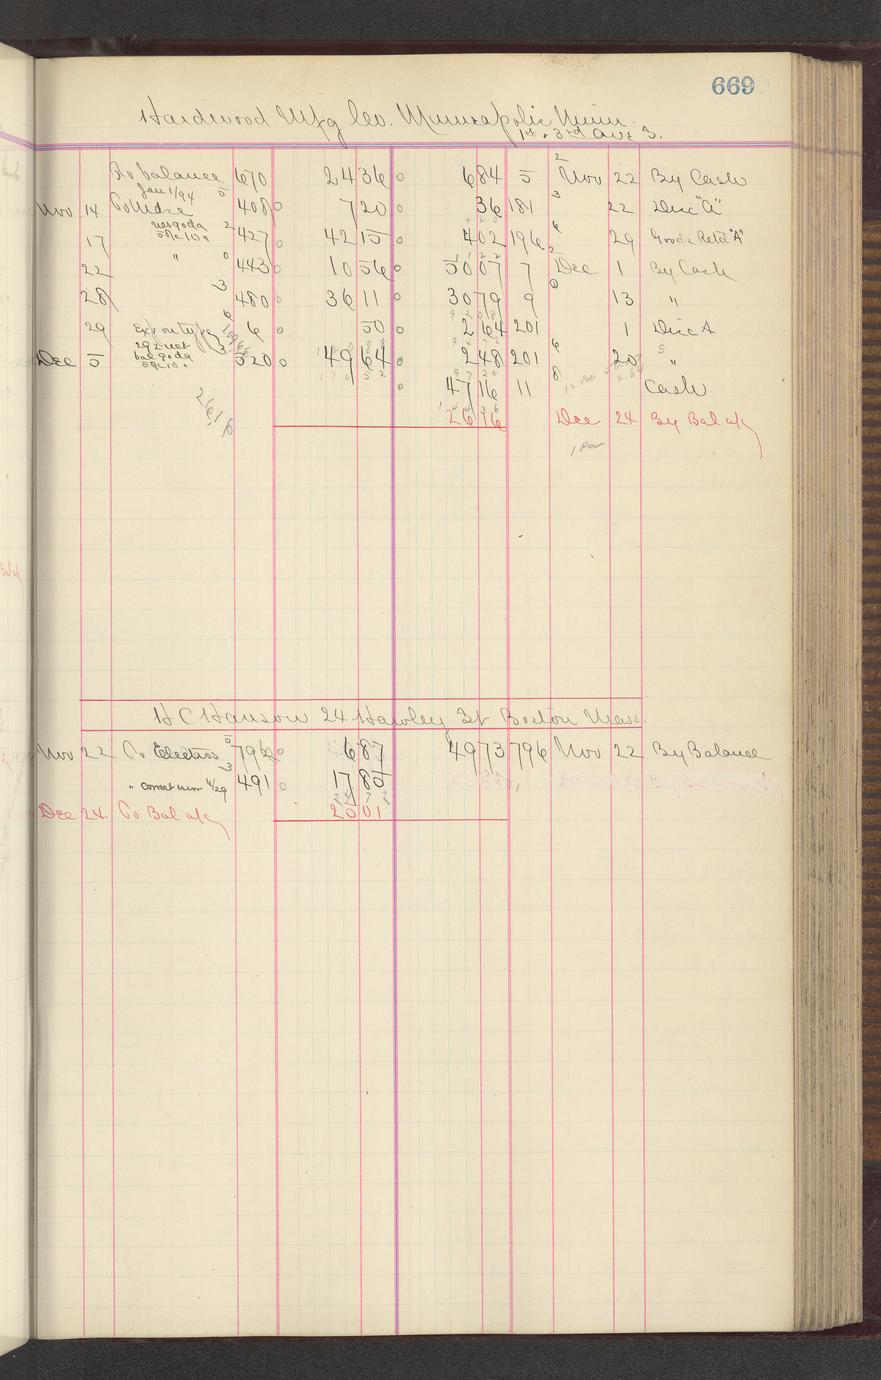 669
Hardwood Mfg Co. Minneapolis Minn.
1st & 3rd Ave S.
To balance 670 24 36 6 84 5 Nov 22 By Cash
Jan 1/94
Nov 14 To Mdse 408 7 20 36 181 22 Disc "A"
17 427 42 15 4 02 196 29 Goods Retd "A"
22 " 443 10 56 50 07 7 Dec 1 By Cash
28 480 36 11 30 79 9 13 "
29 6 50 2 64 201 1 Disc A
Dec 5 bal goda 520 49 64 2 48 201 20 "
47 16 11 Cash
26 16 Dec 24 By Bal a/c
2616
H C Hanson 24 Hawley St Boston Mass.
Nov 22 To Electros 796 6 87 49 73 796 Nov 22 By Balance
" 4/29 491 17 85
Dec 24 To Bal a/c 20 01